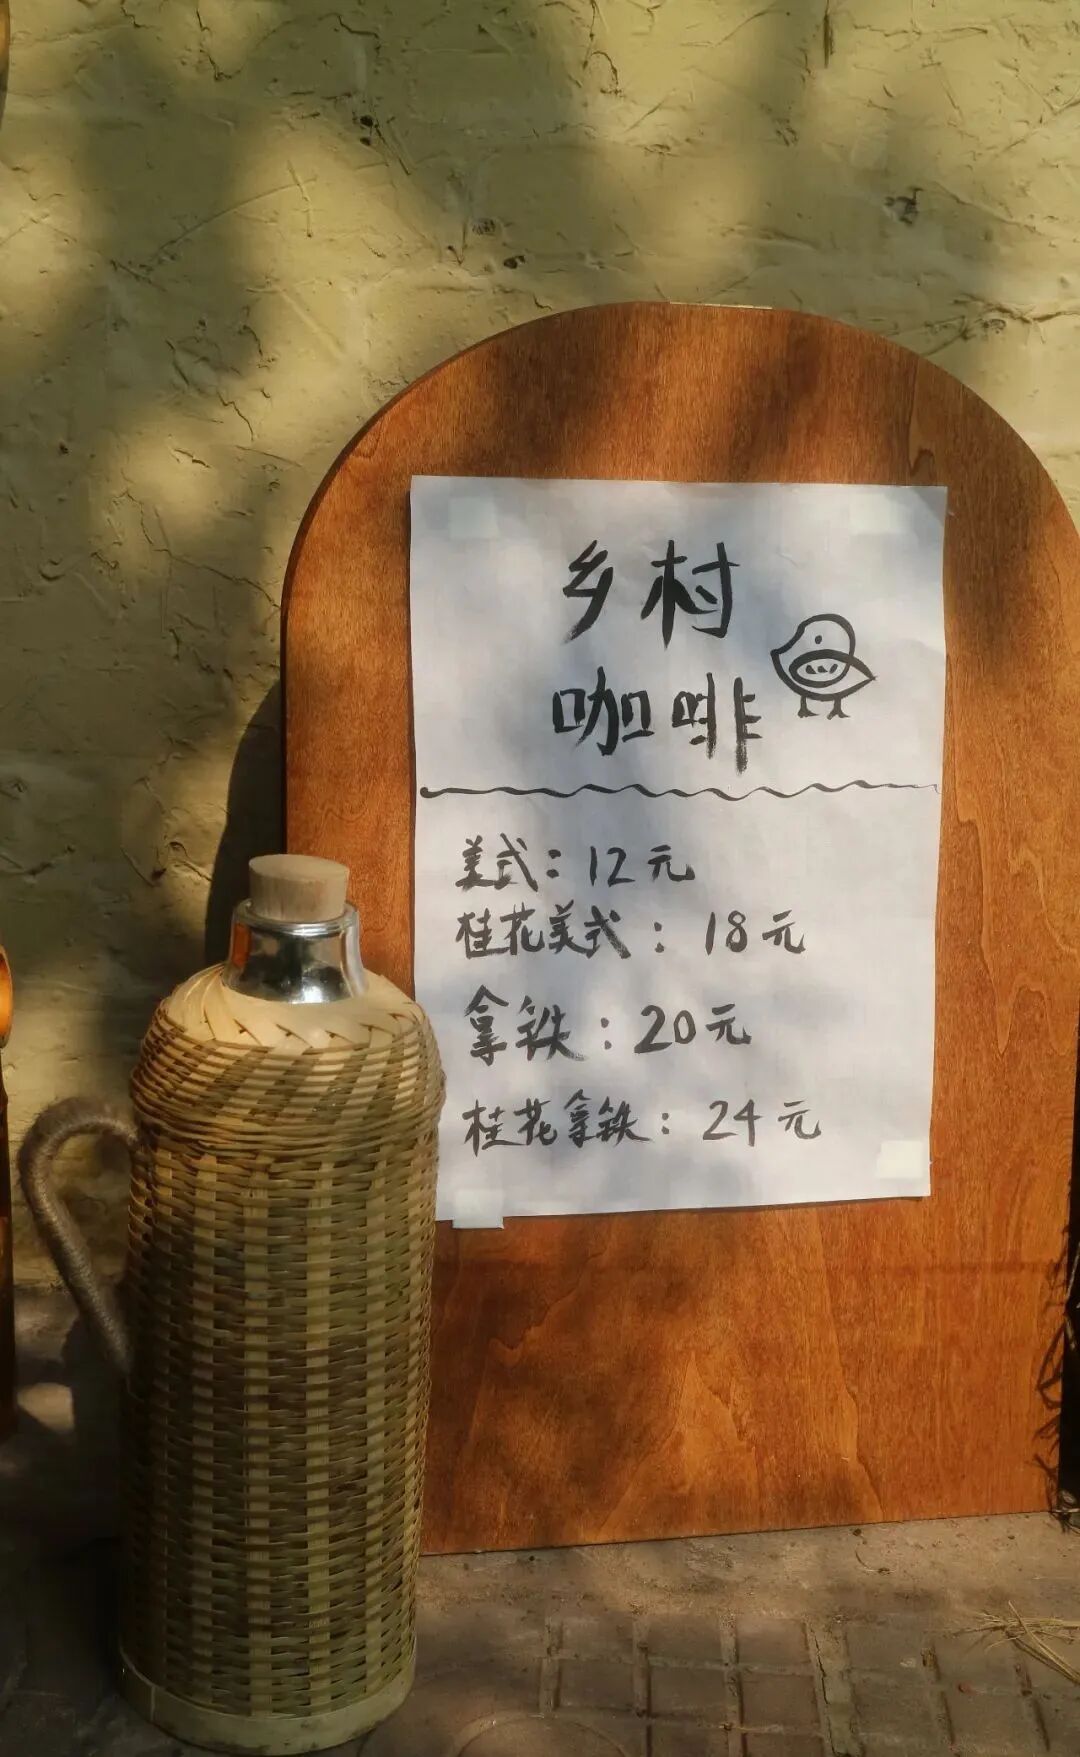 乡村
咖啡
美式：12元
桂花美式：18元
拿铁：20元
桂花拿铁：24元